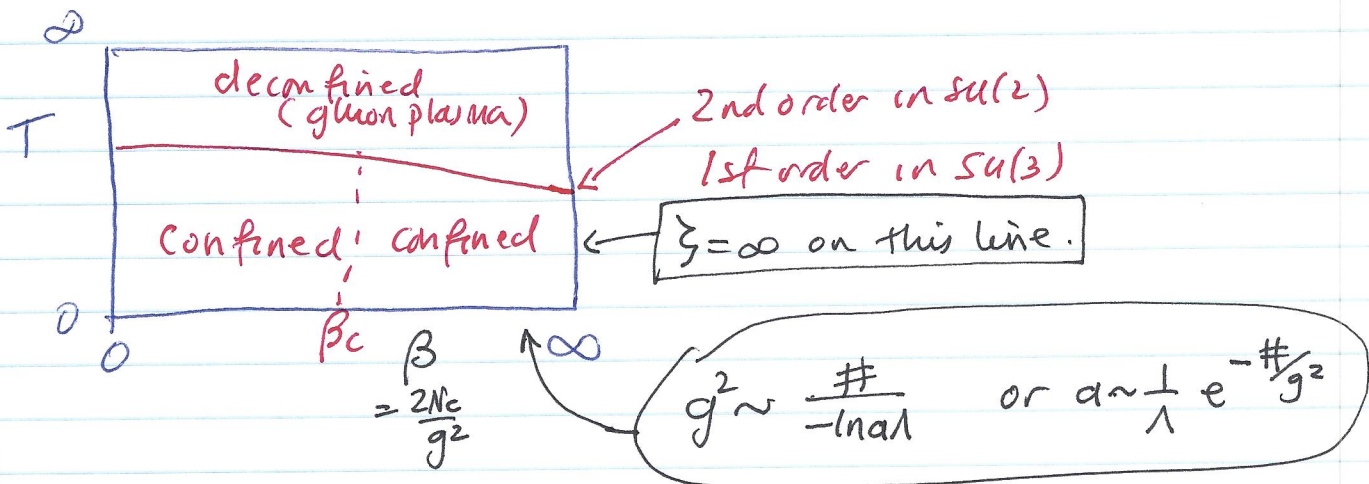 ∞
deconfined
(gluon plasma)
T
2nd order in SU(2)
1st order in SU(3)
confined
confined
ξ=∞ on this line.
0
0
βc
β
= 2Nc/g²
∞
g² ~ #/-lnaΛ or a~ 1/Λ e^-#/g²